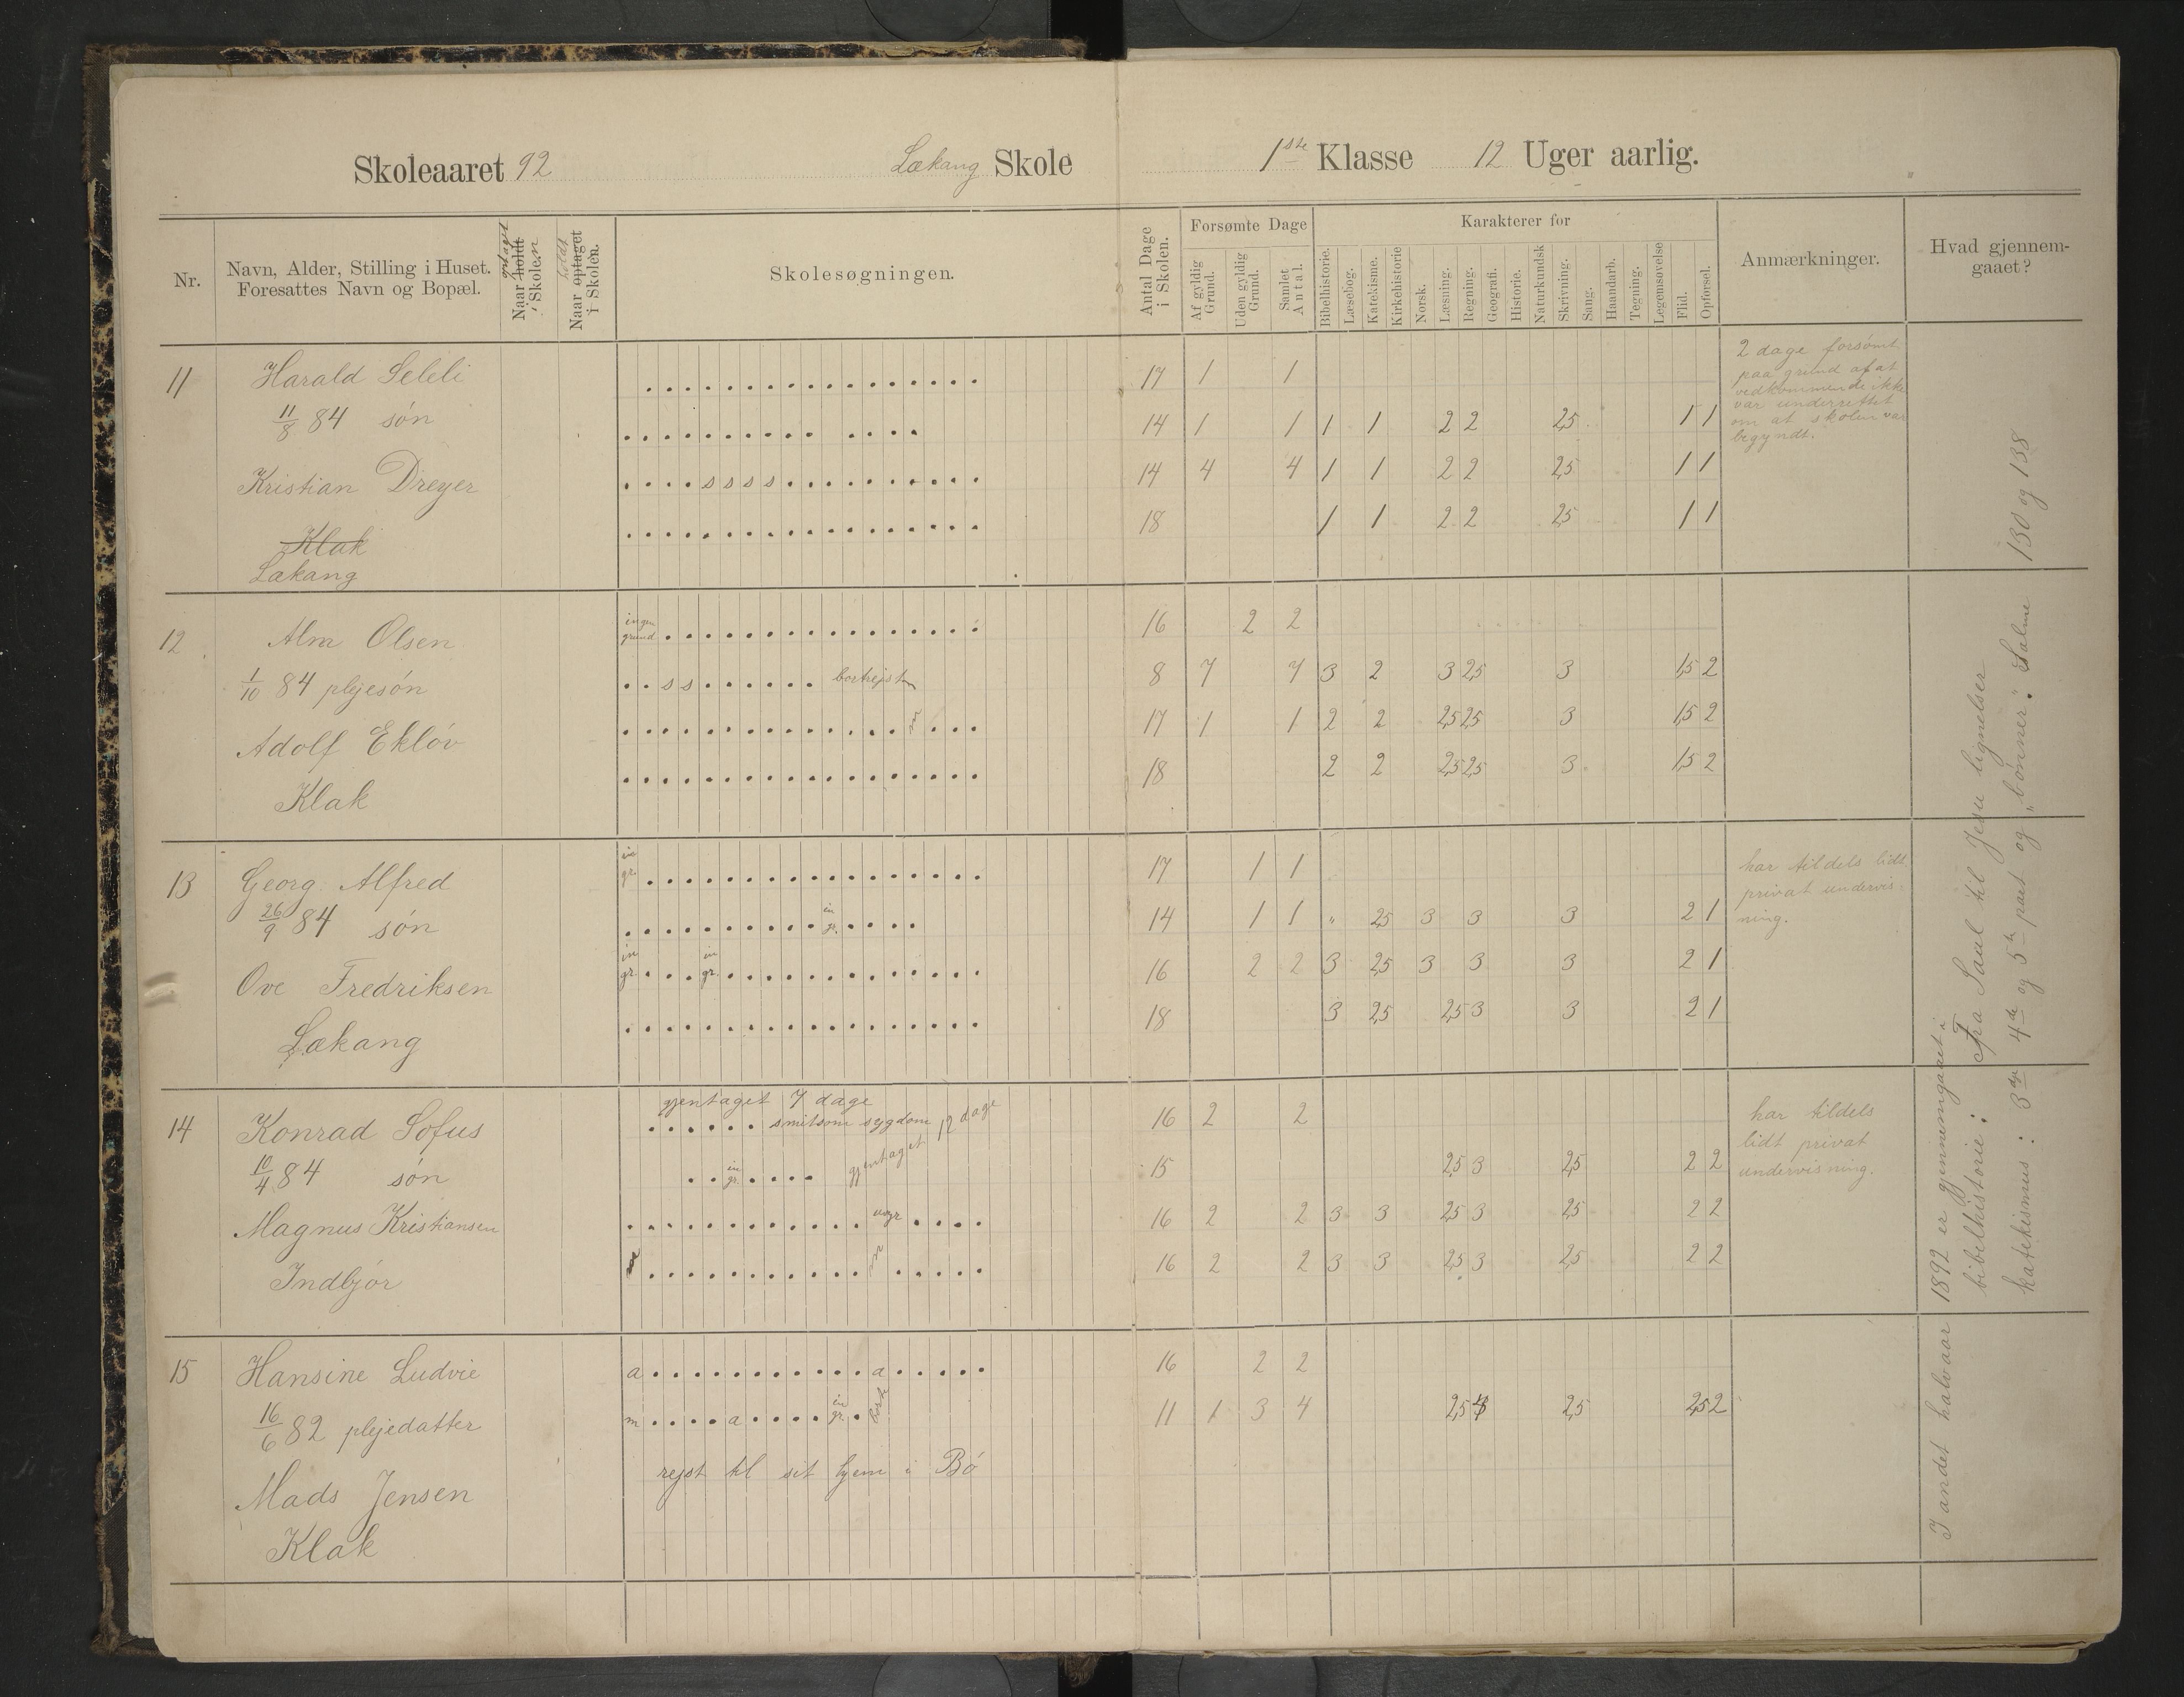 Skoleaaret 92 Lækang Skole 1ste Klasse 12 Uger aarlig.
Nr.
Navn, Alder, Stilling i Huset.
Foresattes Navn og Bopæl.
Naar holdt optaget
i Skolen
Naar optaget holdt
i Skolen.
Skolesøgningen.
Antal Dage
i Skolen.
Forsømte Dage
Af gyldig
Grund.
Uden gyldig
Grund.
Samlet
Antal.
Karakterer for
Bibelhistorie.
Læsebog.
Katekisme.
Kirkehistorie
Norsk.
Læsning.
Regning.
Geografi.
Historie.
Naturkundsk
Skrivning.
Sang.
Haandarb.
Tegning.
Legemsøvelse
Flid.
Opførsel.
Anmærkninger.
Hvad gjennem-
gaaet?
11 Harald Seleli 17 1 1
11/8 84 søn 14 1 1 1 1 2 2 2,5 1 1
Kristian Dreyer s s s s 14 4 4 1 1 2 2 2,5 1 1
Klak 18 1 1 2 2 2,5 1 1
Lækang
2 dage forsømt
paa grund af at
vedkommende ikke
var underrettet
om at skolen var
begyndt.
12 Alm Olsen ingen grund 16 2 2
1/10 84 plejesøn s s bortrejst 8 7 7 3 2 3 2,5 3 1,5 2
Adolf Ekløv 17 1 1 2 2 2,5 2,5 3 1,5 2
Klak 18 2 2 2,5 2,5 3 1,5 2
13 Georg Alfred in gr. 17 1 1
26/9 84 søn in gr. 14 1 1 " 2,5 3 3 3 2 1
Ove Fredriksen in gr. in gr. 16 2 2 3 2,5 3 3 3 2 1
Lækang 18 3 2,5 2,5 3 3 2 1
har tildels lidt
privat undervis-
ning.
14 Konrad Sofus gjentaget 7 dage
smitsom sygdom 16 2 2
10/4 84 søn in gr. gjentaget 12 dage 15 2,5 3 2,5 2 2
Magnus Kristiansen 16 2 2 3 3 2,5 3 2,5 2 2
Indbjør 16 2 2 3 3 2,5 3 2,5 2 2
har tildels
lidt privat
undervisning.
15 Hansine Ludvie a a 16 2 2
16/6 82 plejedatter m a in gr. 11 1 3 4 2,5 2,5 2,5 2
Mads Jensen rejst til sit hjem i Bø
Klak
I andet halvaar 1892 er gjennemgaaet i
bibelhistorie: Fra Saul til Jesu lignelser
katekismus: 3dje 4de og 5te part og "bønner". Salme 130 og 138